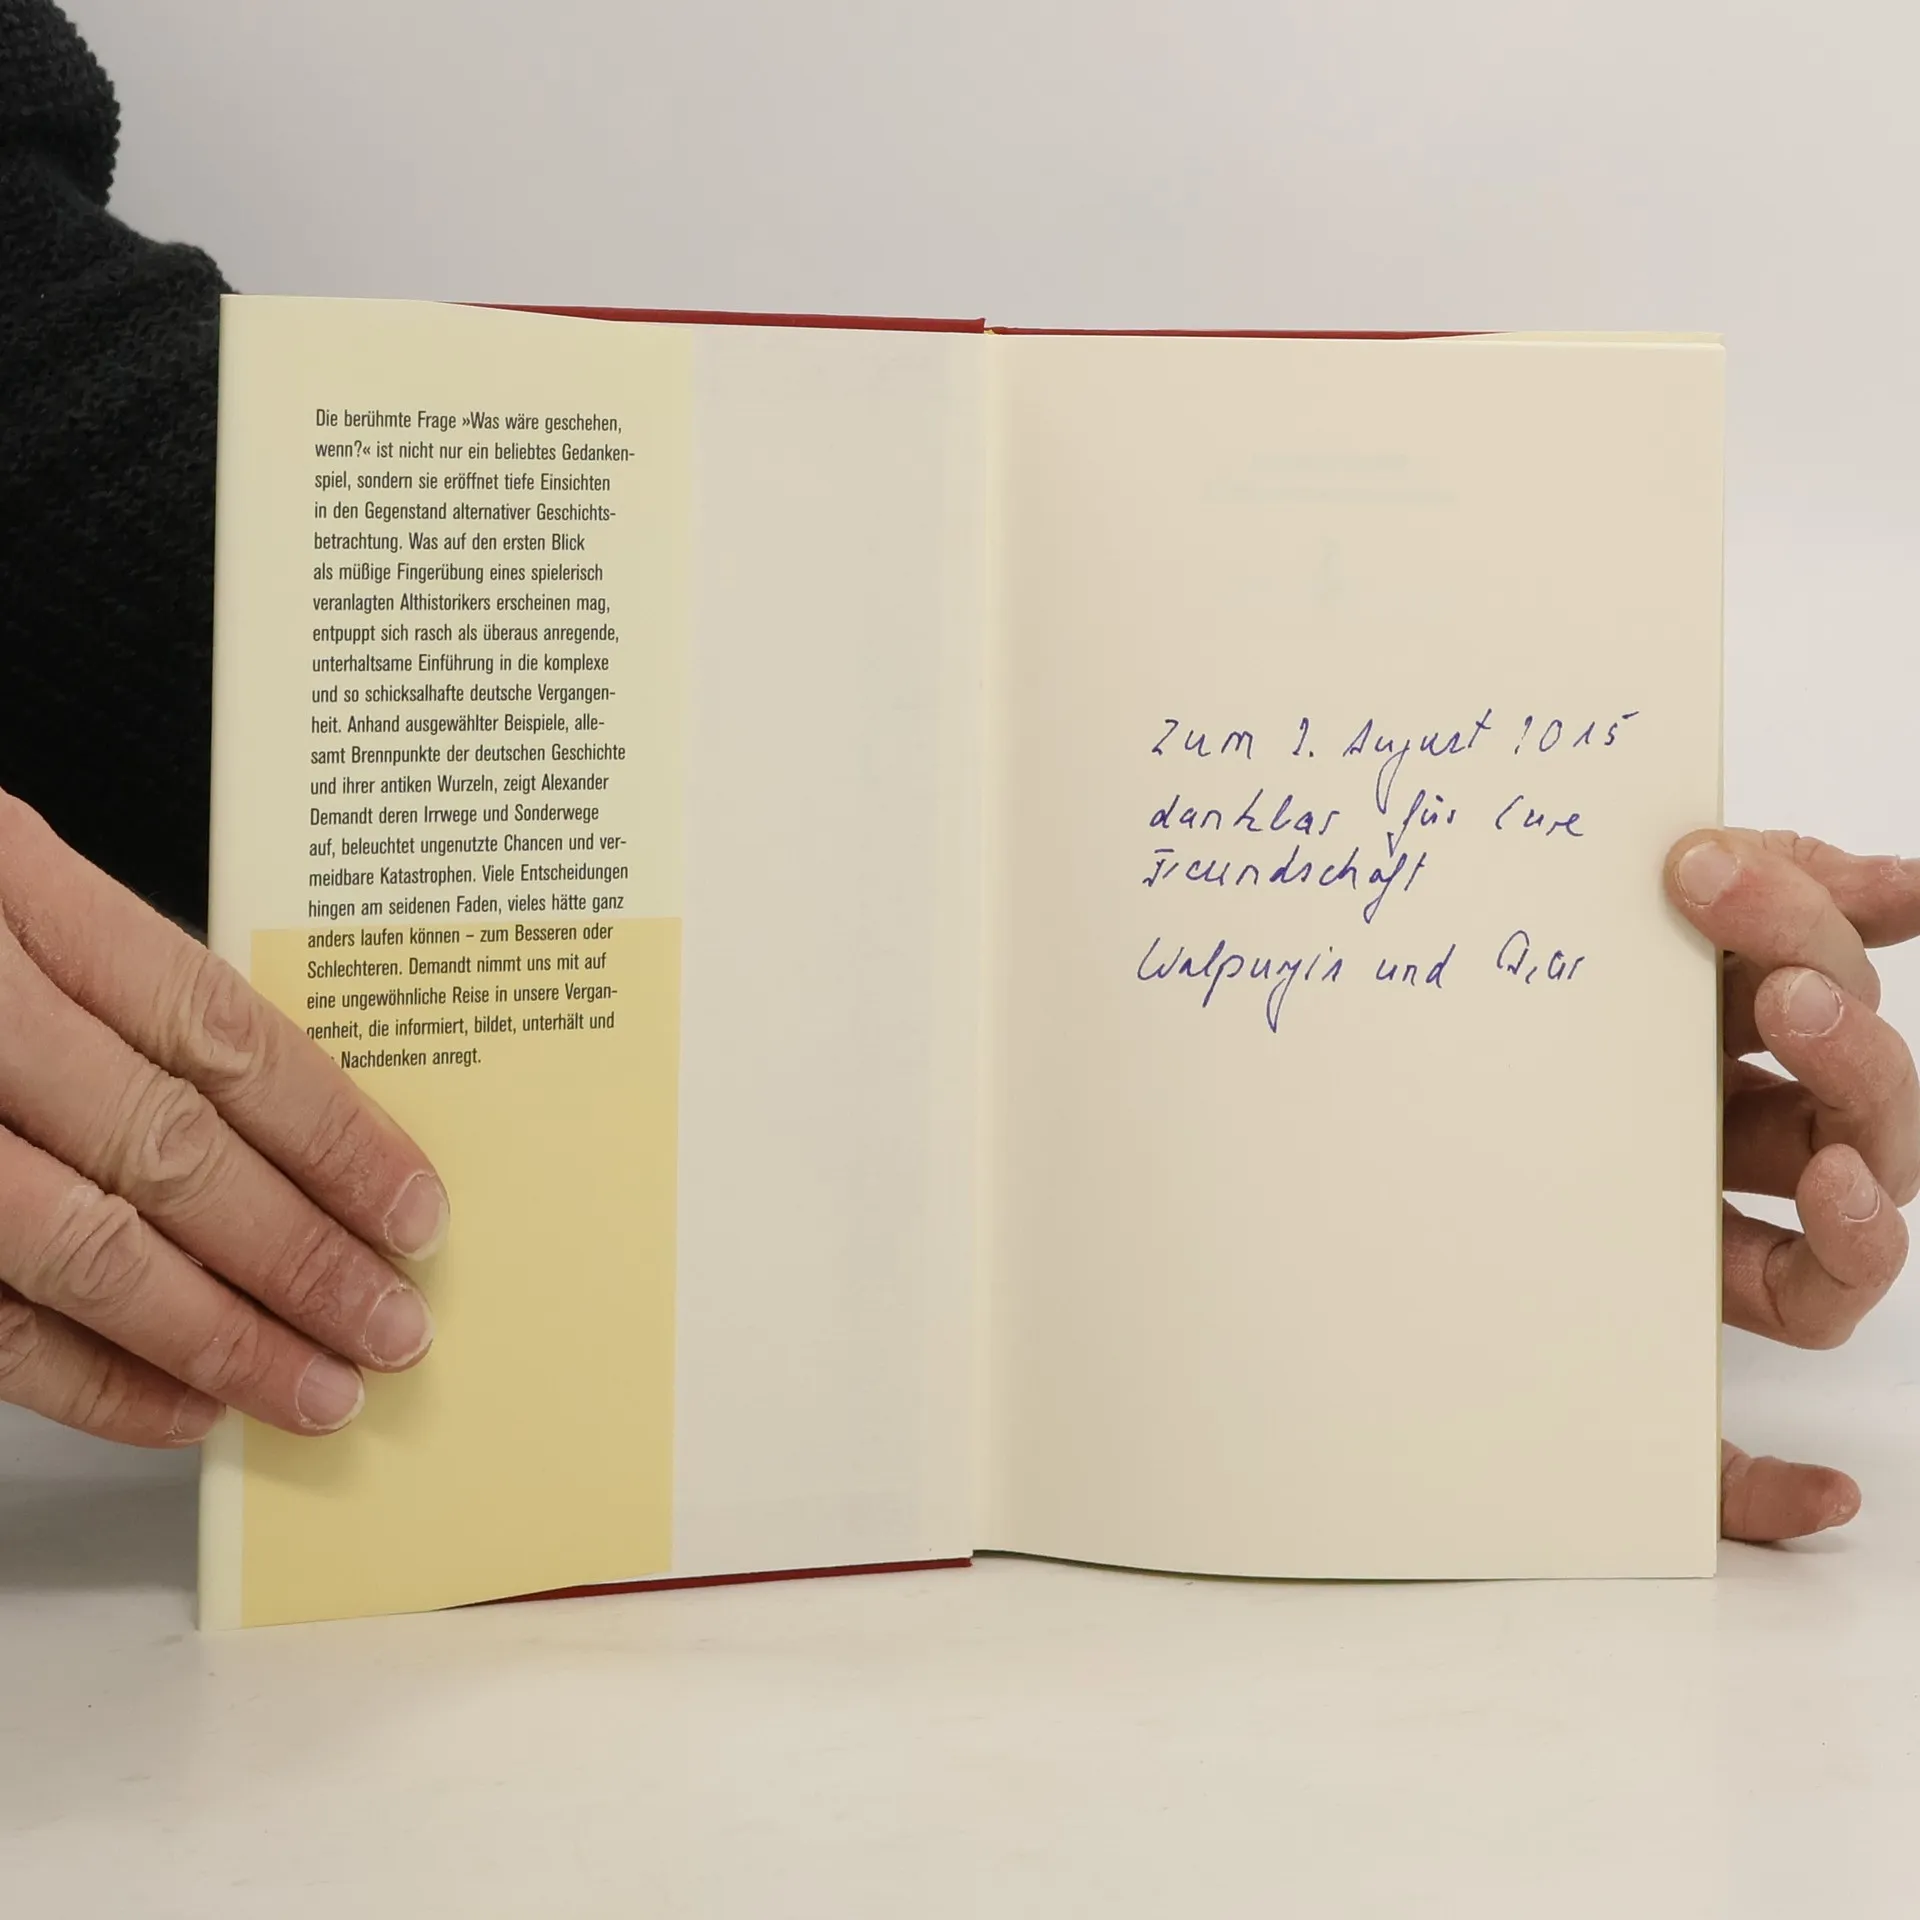 Die berühmte Frage »Was wäre geschehen,
wenn?« ist nicht nur ein beliebtes Gedanken-
spiel, sondern sie eröffnet tiefe Einsichten
in den Gegenstand alternativer Geschichts-
betrachtung. Was auf den ersten Blick
als müßige Fingerübung eines spielerisch
veranlagten Althistorikers erscheinen mag,
entpuppt sich rasch als überaus anregende,
unterhaltsame Einführung in die komplexe
und so schicksalhafte deutsche Vergangen-
heit. Anhand ausgewählter Beispiele, alle-
samt Brennpunkte der deutschen Geschichte
und ihrer antiken Wurzeln, zeigt Alexander
Demandt deren Irrwege und Sonderwege
auf, beleuchtet ungenutzte Chancen und ver-
meidbare Katastrophen. Viele Entscheidungen
hingen am seidenen Faden, vieles hätte ganz
anders laufen können – zum Besseren oder
Schlechteren. Demandt nimmt uns mit auf
eine ungewöhnliche Reise in unsere Vergan-
genheit, die informiert, bildet, unterhält und
Nachdenken anregt.
Zum 2. August 2015
dankbar für Eure
Freundschaft
Walpurgis und